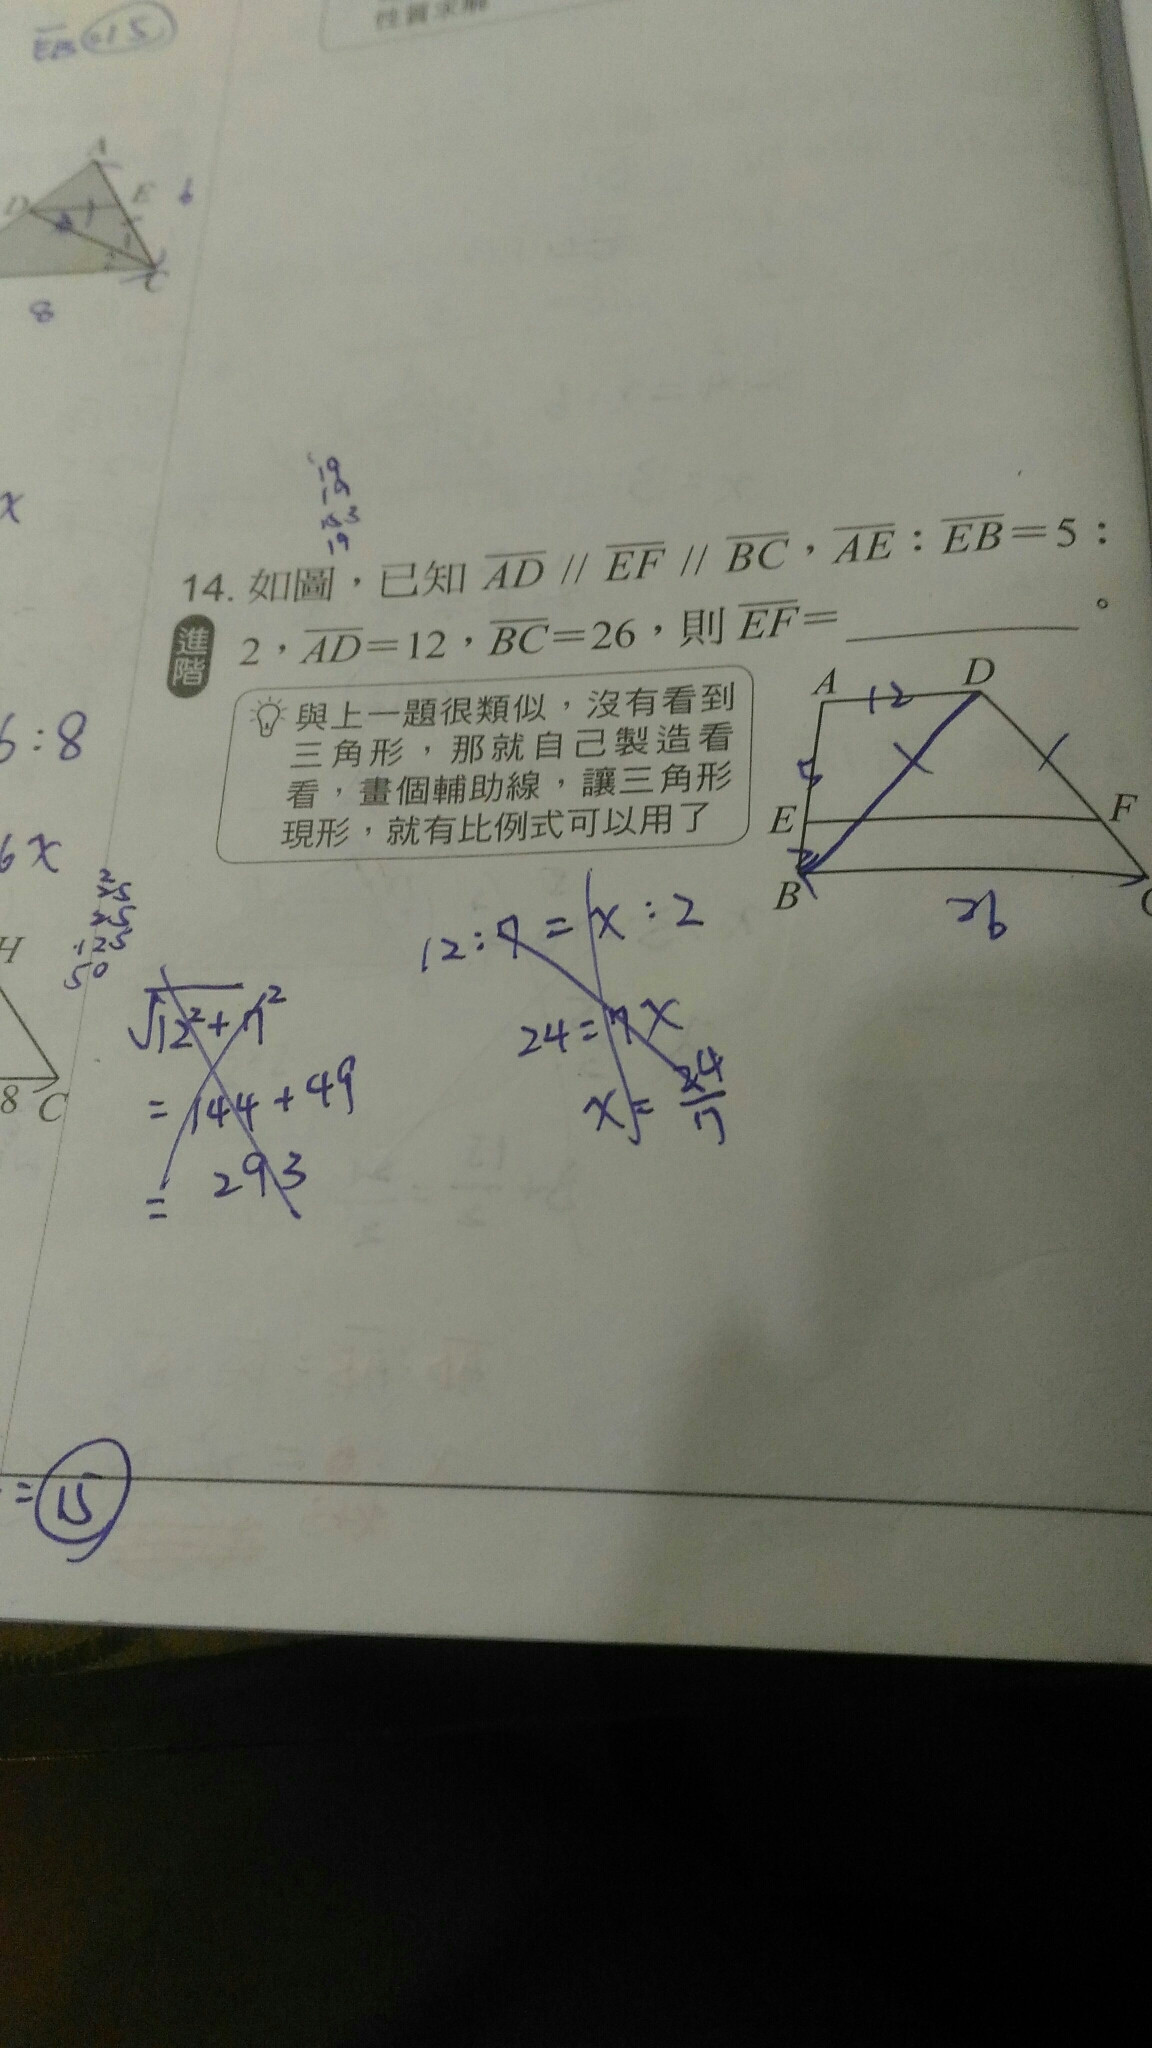 EB=15
A
D
E
6
1
C
8
x
19
19
19
14. 如圖，已知 AD // EF // BC，AE：EB＝5：
進階
2，AD＝12，BC＝26，則 EF＝________。
與上一題很類似，沒有看到
三角形，那就自己製造看
看，畫個輔助線，讓三角形
現形，就有比例式可以用了
A
D
12
5
E
F
2
B
26
6:8
6x
25
25
125
50
H
8
C
12:7=x:2
24=7x
x=24/7
√12²+7²
=144+49
= 293
=15